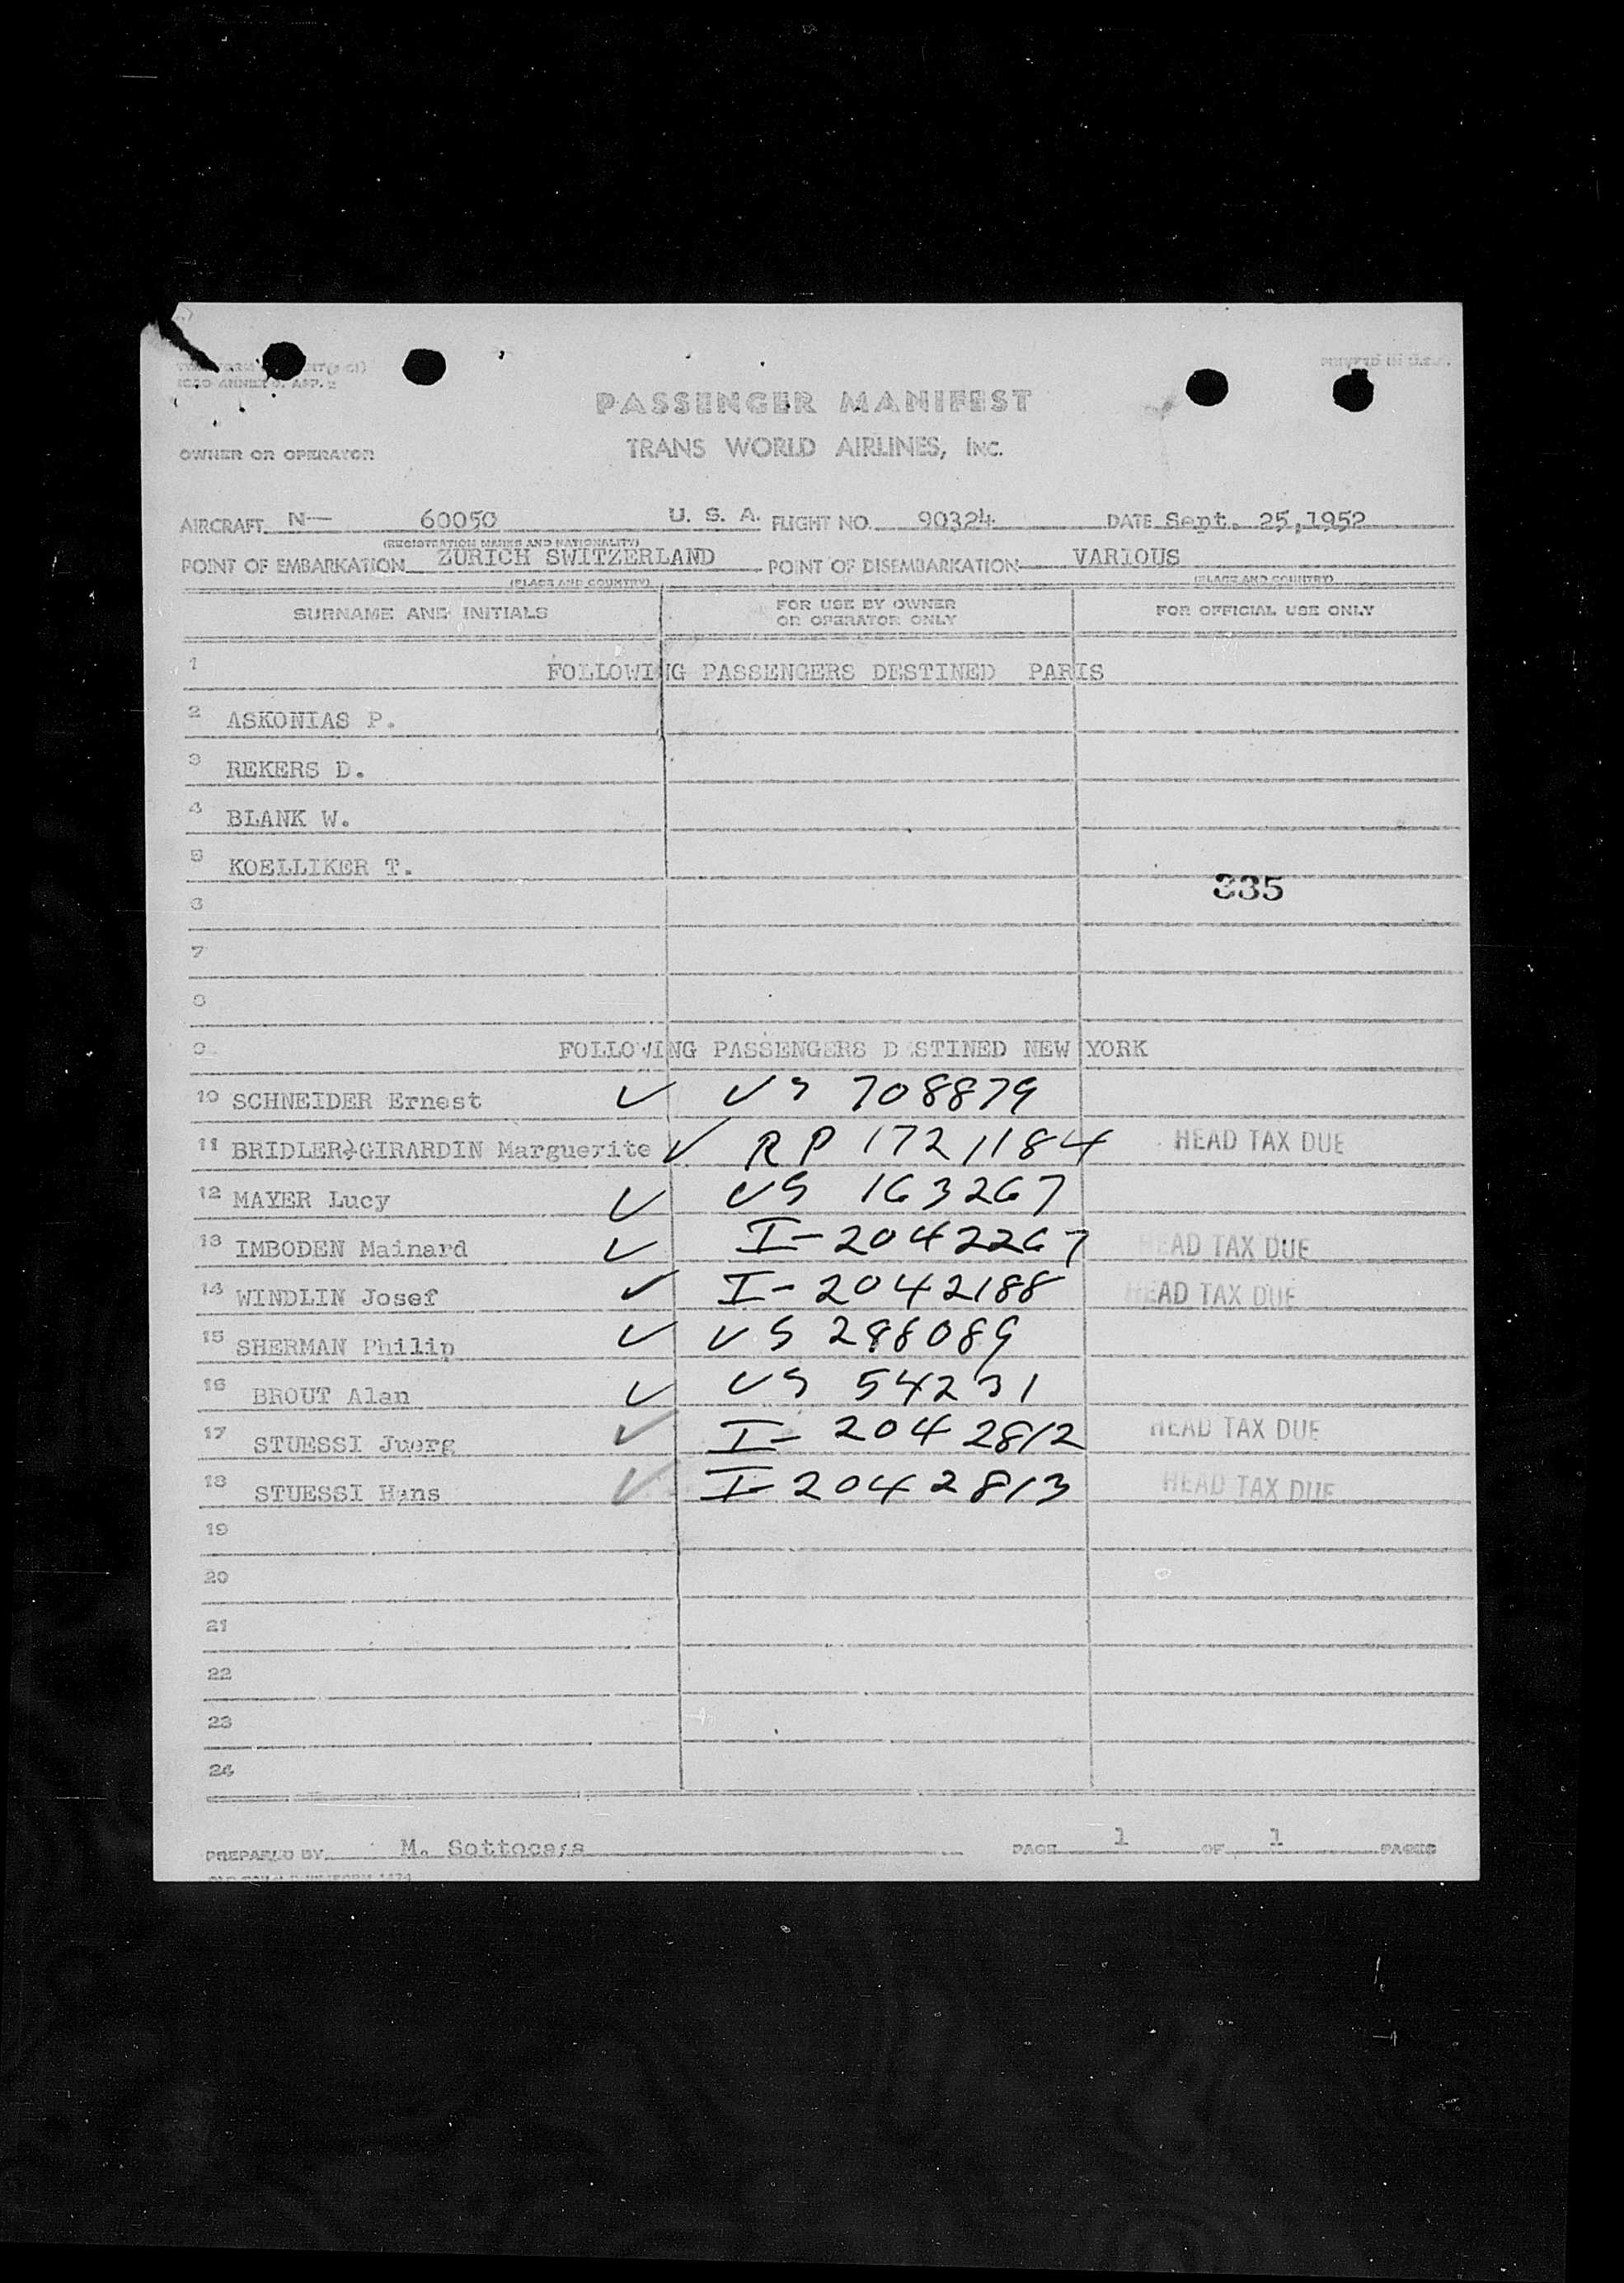 PRINTED IN U.S.A.
PASSENGER MANIFEST
OWNER OR OPERATOR TRANS WORLD AIRLINES, INC.
AIRCRAFT N— 60050 U. S. A. FLIGHT NO. 90324 DATE Sept. 25,1952
(REGISTRATION MARKS AND NATIONALITY)
POINT OF EMBARKATION ZURICH SWITZERLAND POINT OF DISEMBARKATION VARIOUS
(PLACE AND COUNTRY) (PLACE AND COUNTRY)
SURNAME AND INITIALS FOR USE BY OWNER OR OPERATOR ONLY FOR OFFICIAL USE ONLY
1 FOLLOWING PASSENGERS DESTINED PARIS
2 ASKONIAS P.
3 REKERS D.
4 BLANK W.
5 KOELLIKER T.
335
6
7
8
9 FOLLOWING PASSENGERS DESTINED NEW YORK
10 SCHNEIDER Ernest ✓ US 708879
11 BRIDLER-GIRARDIN Marguerite ✓ RP 1721184 HEAD TAX DUE
12 MAYER Lucy ✓ US 163267
13 IMBODEN Mainard ✓ I-2042267 HEAD TAX DUE
14 WINDLIN Josef ✓ I-2042188 HEAD TAX DUE
15 SHERMAN Philip ✓ US 288089
16 BROUT Alan ✓ US 54231
17 STUESSI Juerg ✓ I-2042812 HEAD TAX DUE
18 STUESSI Hans ✓ I-2042813 HEAD TAX DUE
19
20
21
22
23
24
PREPARED BY M. Sottocasa PAGE 1 OF 1 PAGES